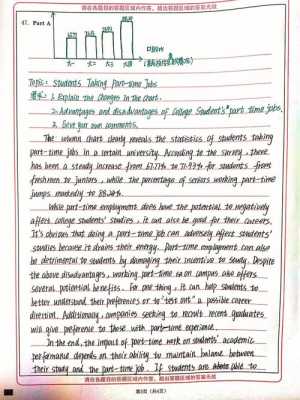 请在各题目的答题区域内作答，超出答题区域的答案无效
47. Part A
大一 大二 大三 大四
Topic: Students Taking Part-time Jobs
要求: 1. Explain the Changes in the chart.
2. Advantages and disadvantages of College Student's part time jobs.
3. Give your own comments.
The column chart clearly reveals the statistics of students taking
part-time jobs in a certain university. According to the survey, there
has been a steady increase from 67.77% to 71.93% for students from
freshmen to juniors, while the percentage of seniors working part-time
jumps markedly to 88.24%.
While part-time employment does have the potential to negatively
affect college students' studies, it can also be good for their careers.
It's obvious that doing a part-time job can adversely affect students'
studies because it drains their energy. Part-time employment can also
be detrimental to students by damaging their incentive to study. Despite
the above disadvantages, working part-time on campus also offers
several potential benefits. For one thing, it can help students to
better understand their preferences or to "test out" a possible career
direction. Additionally, companies seeking to recruit recent graduates
will give preference to those with part-time experience.
In the end, the impact of part-time work on students' academic
performance depends on their ability to maintain balance between
their study and the part-time job. If students are able to
请在各题目的答题区域内作答，超出答题区域的答案无效